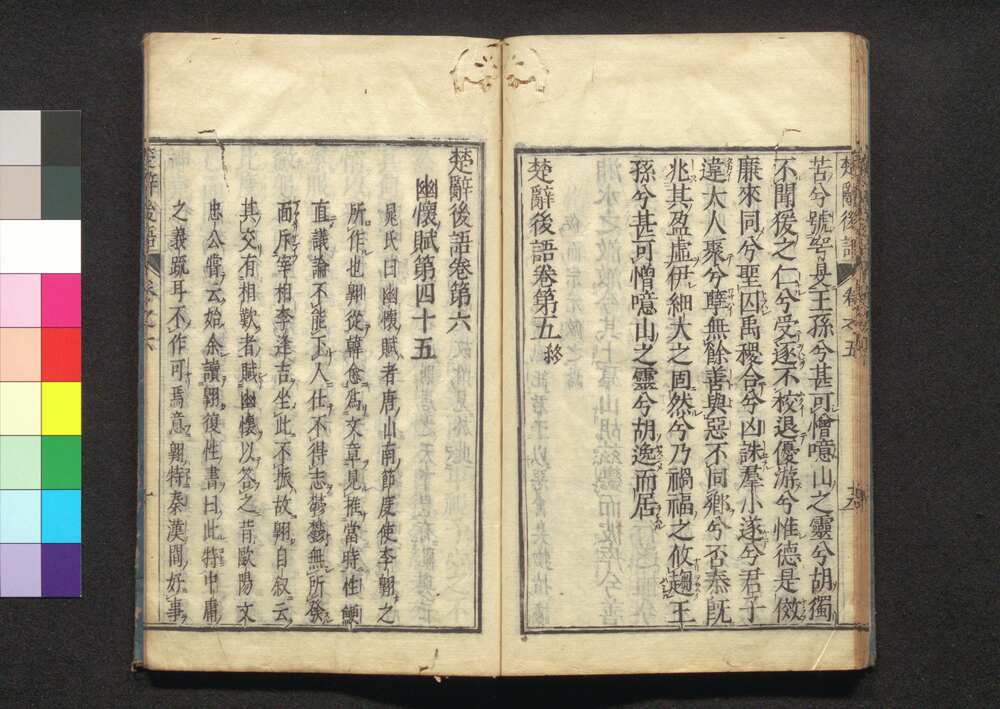 楚辭後語 卷之五
苦兮號咷旻王孫兮甚可憎噫山之靈兮胡獨
不聞猨之仁兮受逐不校退優游兮惟德是傚
廉來同兮聖囚禹稷合兮凶誅羣小遂兮君子
違大人聚兮孽無餘善與惡不同鄉兮否泰既
兆其盈虛伊細大之固然兮乃禍福之攸趨王
孫兮甚可憎噫山之靈兮胡逸而居
楚辭後語卷第五終
楚辭後語卷第六
幽懷賦第四十五
晁氏曰幽懷賦者唐山南節度使李翺之
所作也翺從韓愈爲文章見推當時性鯁
直議論不能下人仕不得志鬱鬱無所發
而斥宰相李逢吉坐此不振故翺自叙云
其交有相歎者賦幽懷以答之昔歐陽文
忠公嘗云始余讀翺復性書曰此特中庸
之義疏耳不作可焉意翺特秦漢間好事
楚辭後語 卷之六